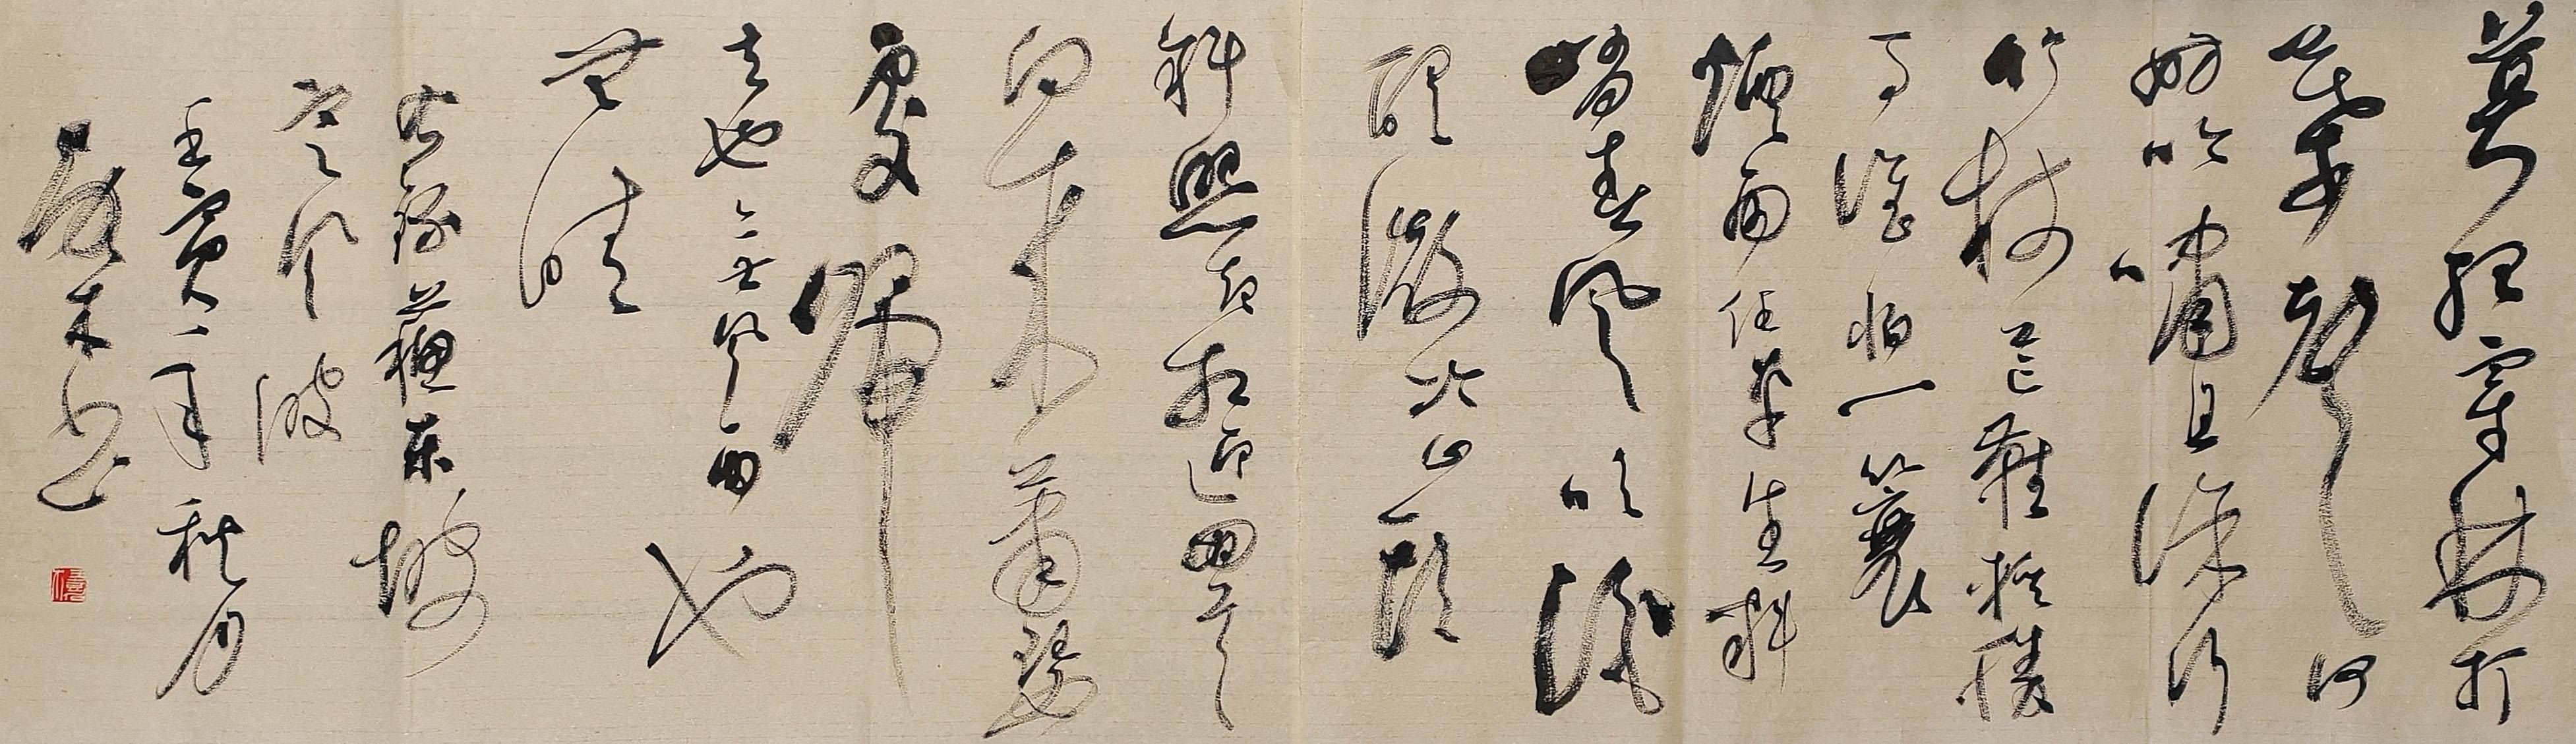 莫聽穿林打
葉聲何
妨吟嘯且徐行
竹杖芒鞋輕勝
馬誰怕一蓑
煙雨任平生料
峭春風吹酒
醒微冷山頭
斜照卻相迎回首
向來蕭瑟
處歸
去也無風雨也
無晴
右錄蘇東坡
定風波
壬寅年秋月
木書